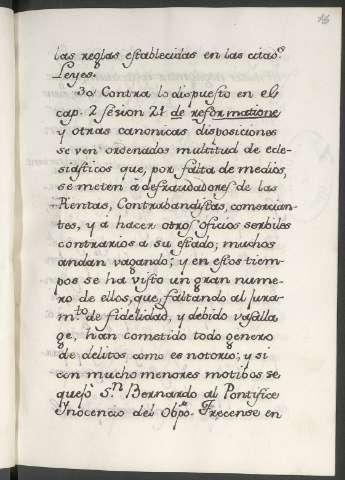 las reglas establecidas en las citads
Leyes.
30 Contra lo dispuesto en el
cap. 2 sesion 21 de reformatione
y otras canonicas disposiciones
se ven ordenados multitud de ecle-
siasticos que, por falta de medios,
se meten á defraudadores de las
Rentas, Contrabandistas, comercian-
tes, y á hacer otros oficios serbiles
contrarios a su estado; muchos
andan vagando; y en estos tiem-
pos se ha visto un gran nume-
ro de ellos, que, faltando al jura-
mto de fidelidad, y debido vasalla
ge, han cometido todo genero
de delitos, como es notorio; y si
con mucho menores motibos se
quejó Sn Bernardo al Pontifice
Inocencio del Obpo. Trecense en